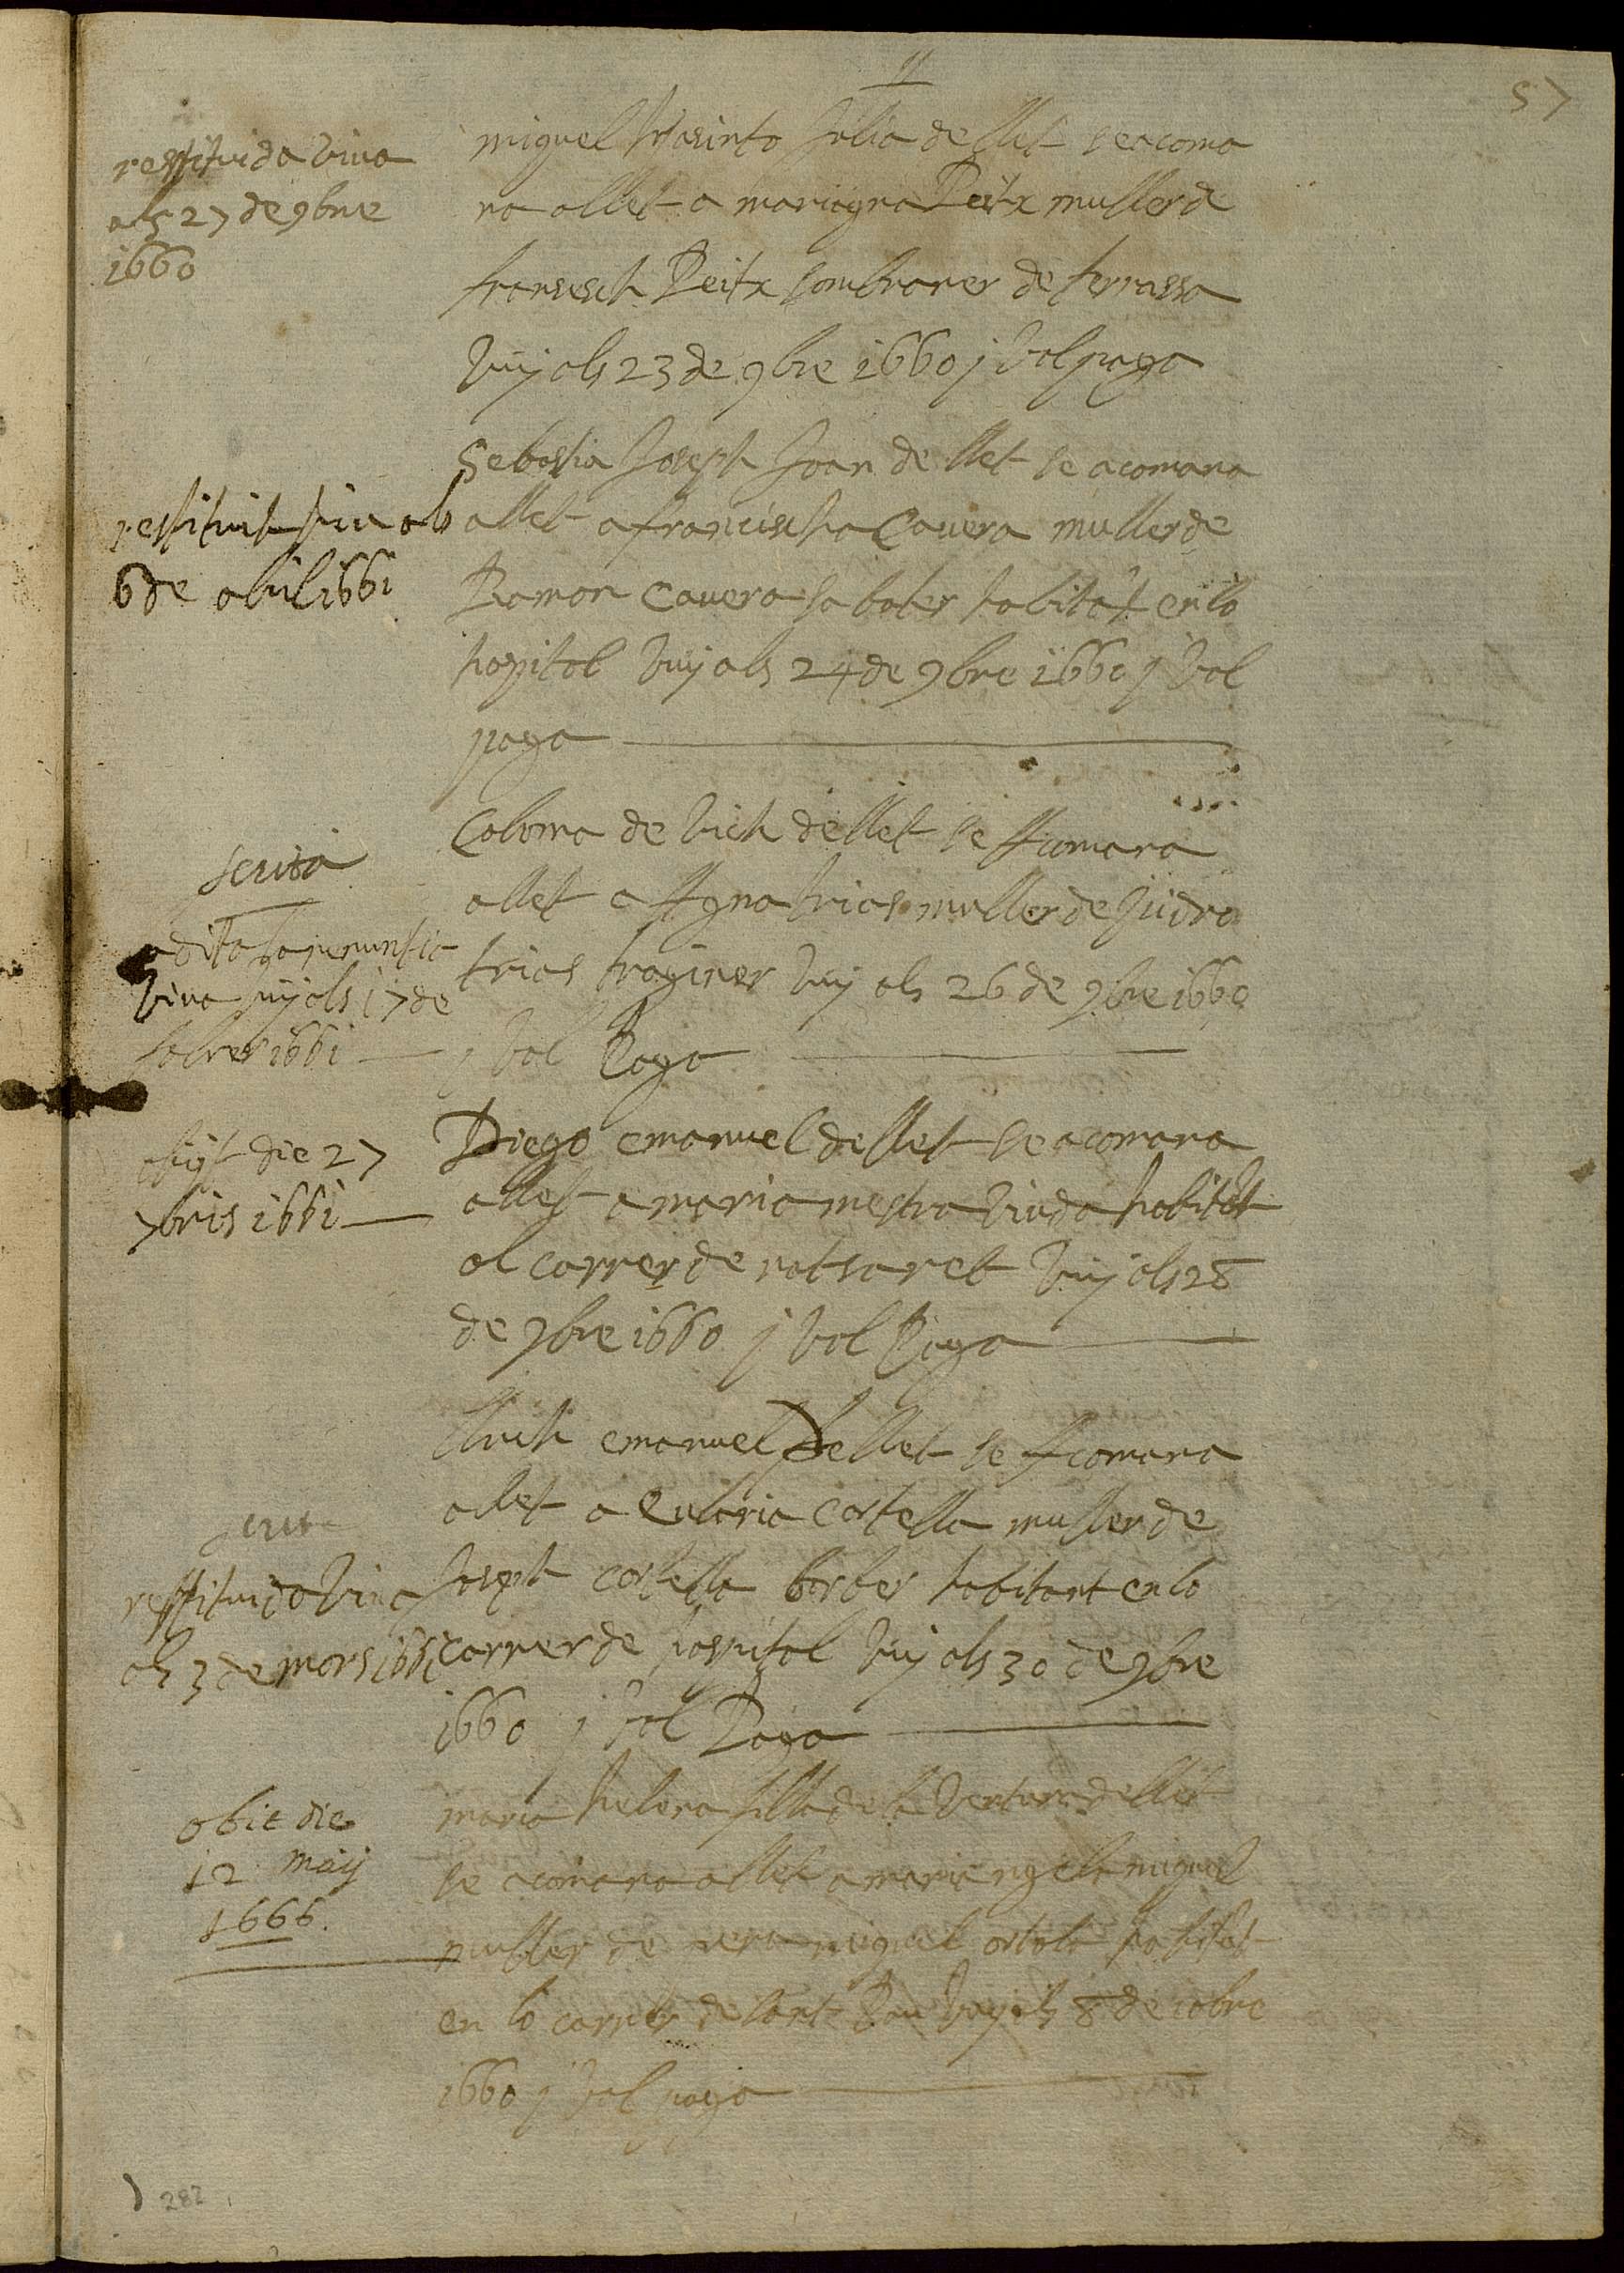 57
restituida viva
als 27 de 9bre
1660
miquel Hiasinto Julia de llet se acoma
na a llet a mariagna Reitx muller de
fransesch Reitx sombrarer de terrassa
vuy als 23 de 9bre 1660 j vol paga
restituit viu als
6 de abril 1661
Sebastia Joseph Joan de llet se acomana
a llet a francischa Cavera muller de
Ramon Cavera sabater habitāt en lo
hospital vuy als 24 de 9bre 1660 j vol
paga
scrita
a dita la renuntia
viva vuy als 17 de
fabrer 1661
Coloma de Vich de llet se Acomana
a llet a Agna trias muller de Jsidro
trias traginer vuy als 26 de 9bre 1660
j vol Paga
obijt die 27
7bris 1661
Diego emanuel de llet se acomana
a llet a maria mestra viuda habitāt
al carrer de natsaret vuy als 28
de 9bre 1660 j vol Paga
restituida viva
als 3 de mars 1661
Lluch emanuel De llet se Acomana
a llet a Eularia Castella muller de
Joseph Castella barber habitant en lo
carrer de hospital vuy als 30 de 9bre
1660 j vol Paga
obit die
12 maij
1666.
maria filla de la Ventura de llet
se acomana a llet a mariangela miquel
muller de pera miquel ortola habitāt
en lo carrer de sant Pau vuy als 8 de 10bre
1660 j vol paga
282